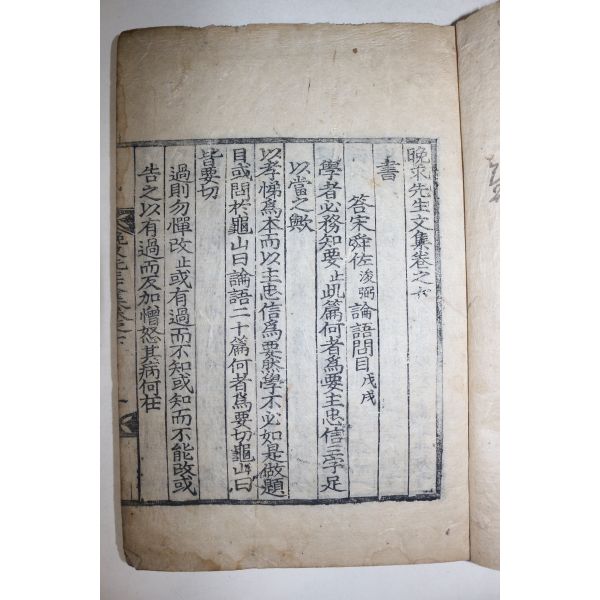 晩求先生文集卷之六
書
答宋舜佐浚弼論語問目戊戌
學者必務知要止此篇何者爲要主忠信三字足
以當之歟
以孝悌爲本而以主忠信爲要然學不必如是做題
目或問於龜山曰論語二十篇何者爲要切龜山曰
皆要切
過則勿憚改止或有過而不知或知而不能改或
告之以有過而反加憎怒其病何在